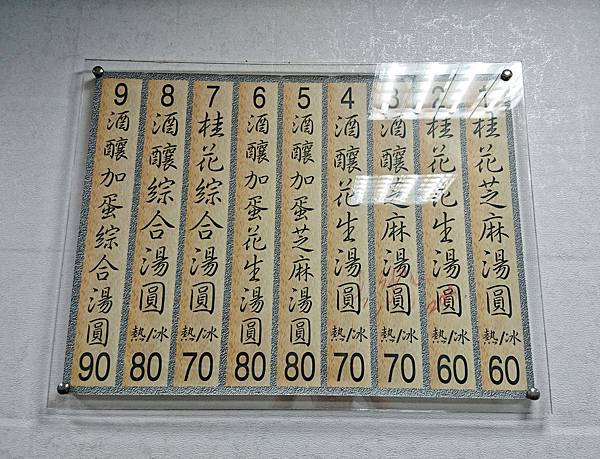 1 桂花芝麻湯圓 熱/冰 60
2 桂花花生湯圓 熱/冰 60
3 酒釀芝麻湯圓 熱/冰 70
4 酒釀花生湯圓 熱/冰 70
5 酒釀加蛋芝麻湯圓 80
6 酒釀加蛋花生湯圓 80
7 桂花綜合湯圓 熱/冰 70
8 酒釀綜合湯圓 熱/冰 80
9 酒釀加蛋綜合湯圓 90